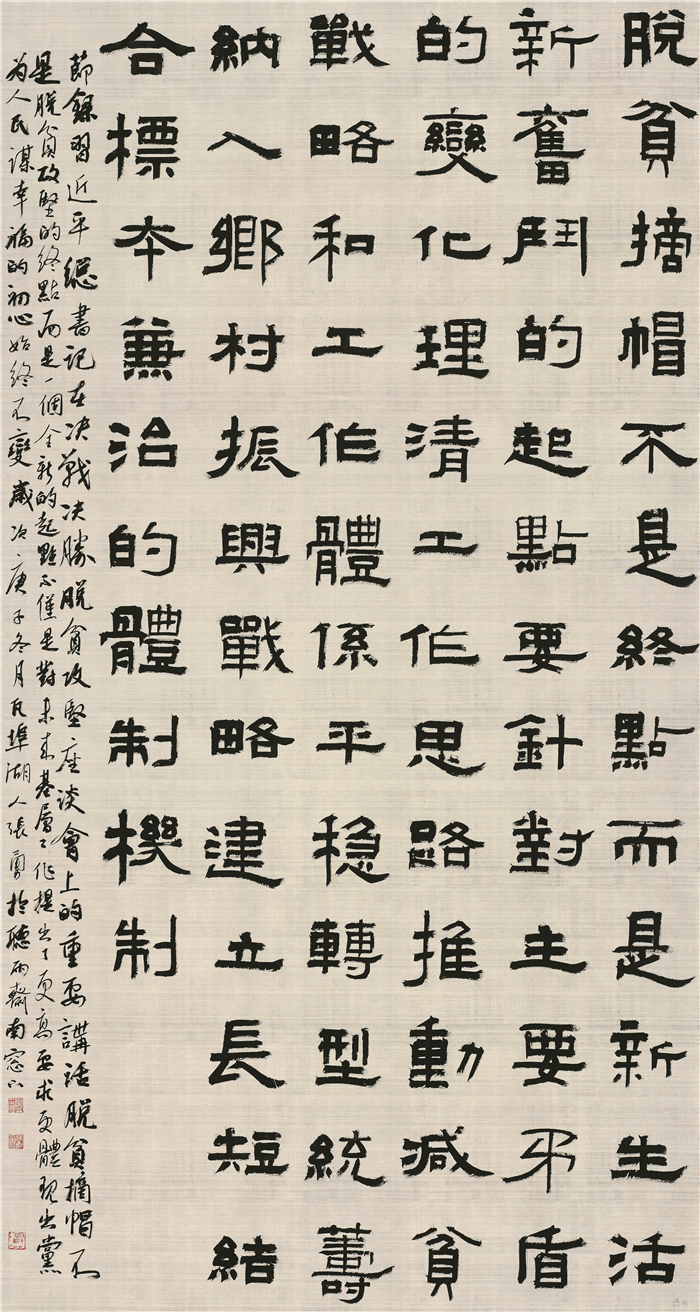 脫貧摘帽不是終點而是新生活
新奮鬥的起點要針對主要矛盾
的變化理清工作思路推動減貧
戰略和工作體係平稳轉型統籌
納入鄉村振興戰略建立長短結
合標本兼治的體制機制
節錄習近平總書記在决戰决勝脫貧攻堅座談會上的重要講話脫貧摘帽不
是脫貧攻堅的終點而是一個全新的起點不僅是對未來基層工作提出了更高要求更體現出黨
为人民謀幸福的初心始終不變歲次庚子冬月瓦埠湖人張勇於聽雨齋南窓下